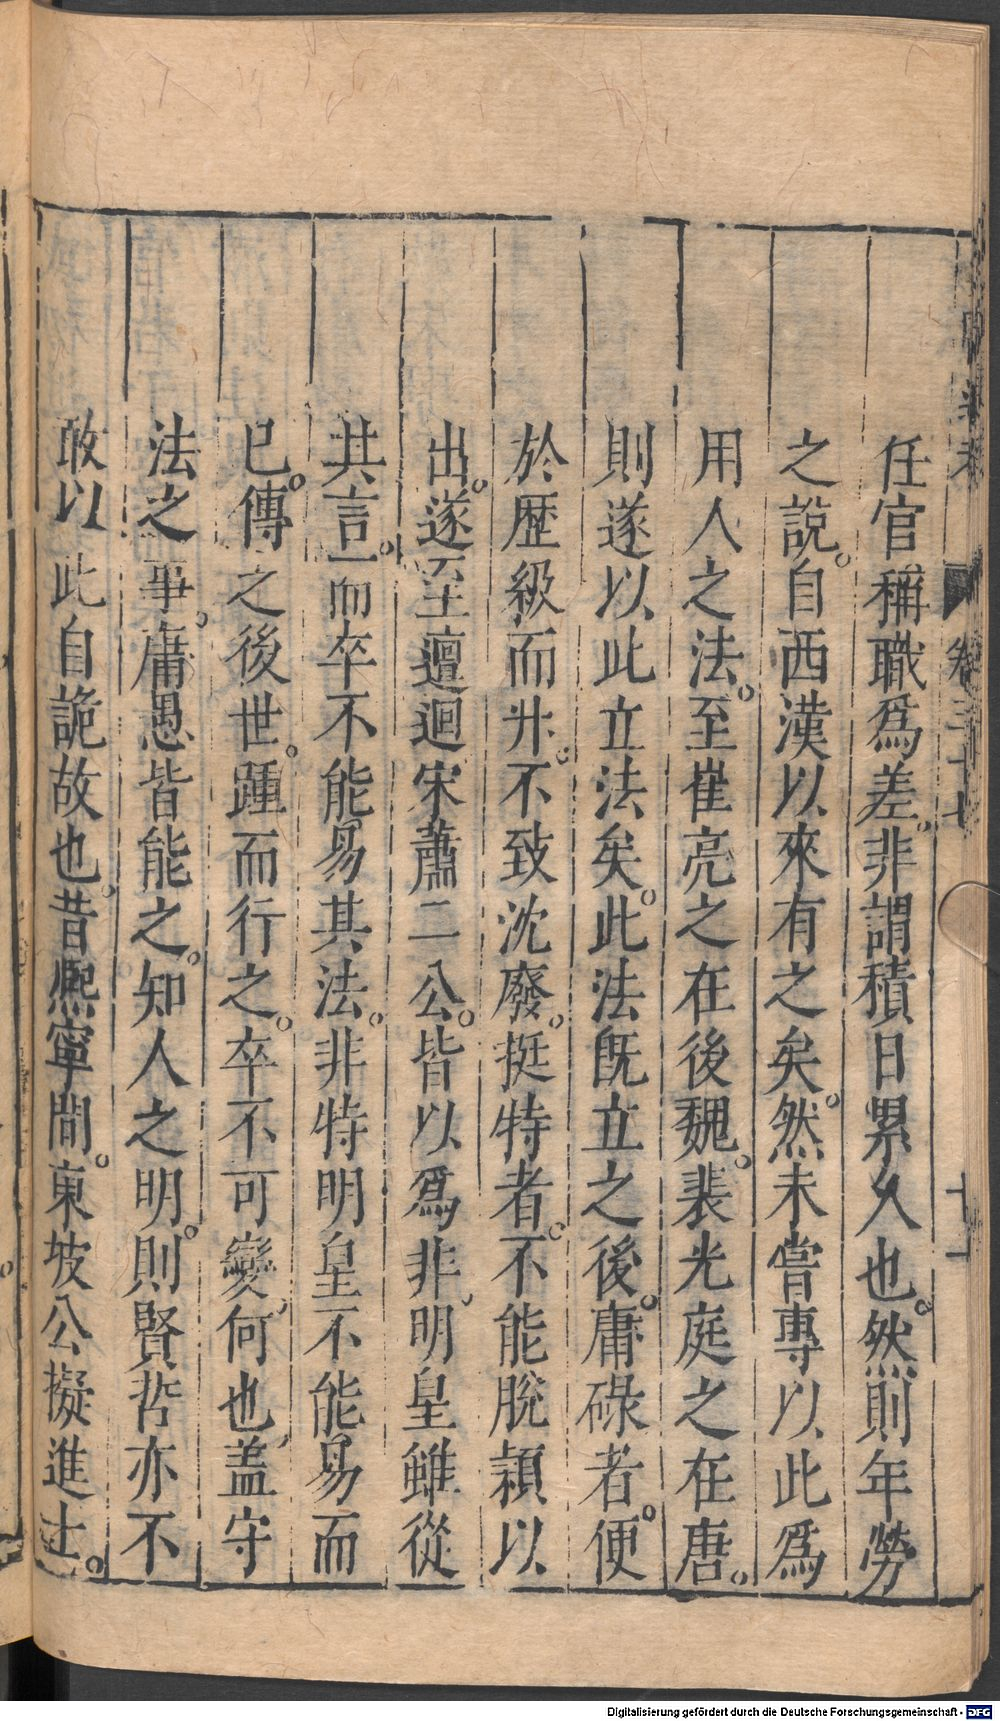 任官稱職爲差非謂積日累久也。然則年勞
之說。自西漢以來有之矣。然未嘗專以此爲
用人之法。至崔亮之在後魏。裴光庭之在唐。
則遂以此立法矣。此法旣立之後。庸碌者。便
於歷級而升。不致沈廢。挺特者。不能脫穎以
出。遂至邅迴宋蕭二公。皆以爲非。明皇雖從
其言。而卒不能易其法。非特明皇不能易而
已。傳之後世。踵而行之。卒不可變。何也。蓋守
法之事。庸愚皆能之。知人之明。則賢哲亦不
敢以此自詭故也。昔熈寧間。東坡公擬進士。
卷三十七
十一
Digitalisierung gefördert durch die Deutsche Forschungsgemeinschaft - DFG